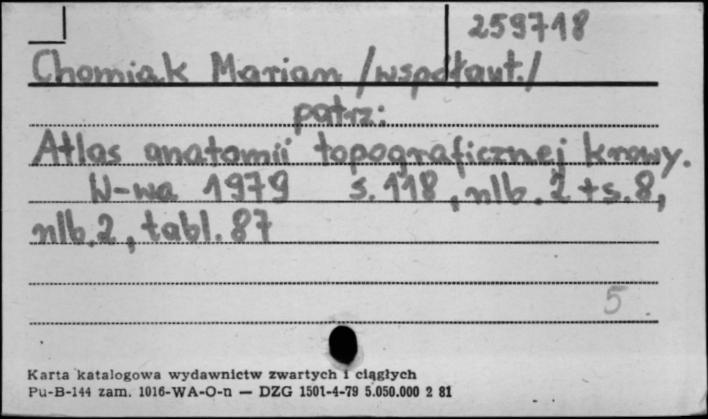 259718
Chomiak Marian /współaut./
patrz:
Atlas anatomii topograficznej krowy.
W-wa 1979 s. 118, nlb. 2 + s. 8,
nlb. 2, tabl. 87
5
Karta katalogowa wydawnictw zwartych i ciągłych
Pu-B-144 zam. 1016-WA-O-n — DZG 1501-4-79 5.050.000 2 81